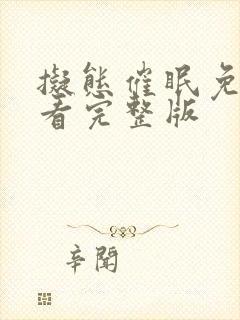 擬態催眠免
看完整版
辛聞